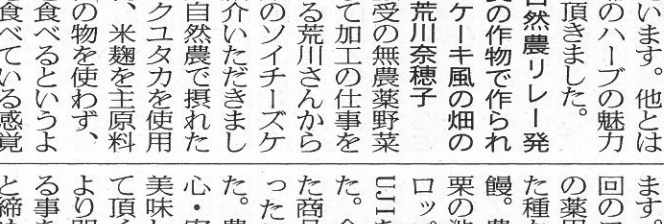 います。他とは
のハーブの魅力
頂きました。
自然農リレー発
の作物で作られ
ケーキ風の畑の
荒川奈穂子
受の無農薬野菜
て加工の仕事を
る荒川さんから
のソイチーズケ
介いただきまし
自然農で摂れた
クユタカを使用
、米麹を主原料
の物を使わず、
食べるというよ
食べている感覚
ます。
回の
の薬
た種
饅。農
栗の渋
ロッ
U.Iを
た。
た商品
ったし
た。農
心・安
美味し
て頂く
より明
る事を
と締め